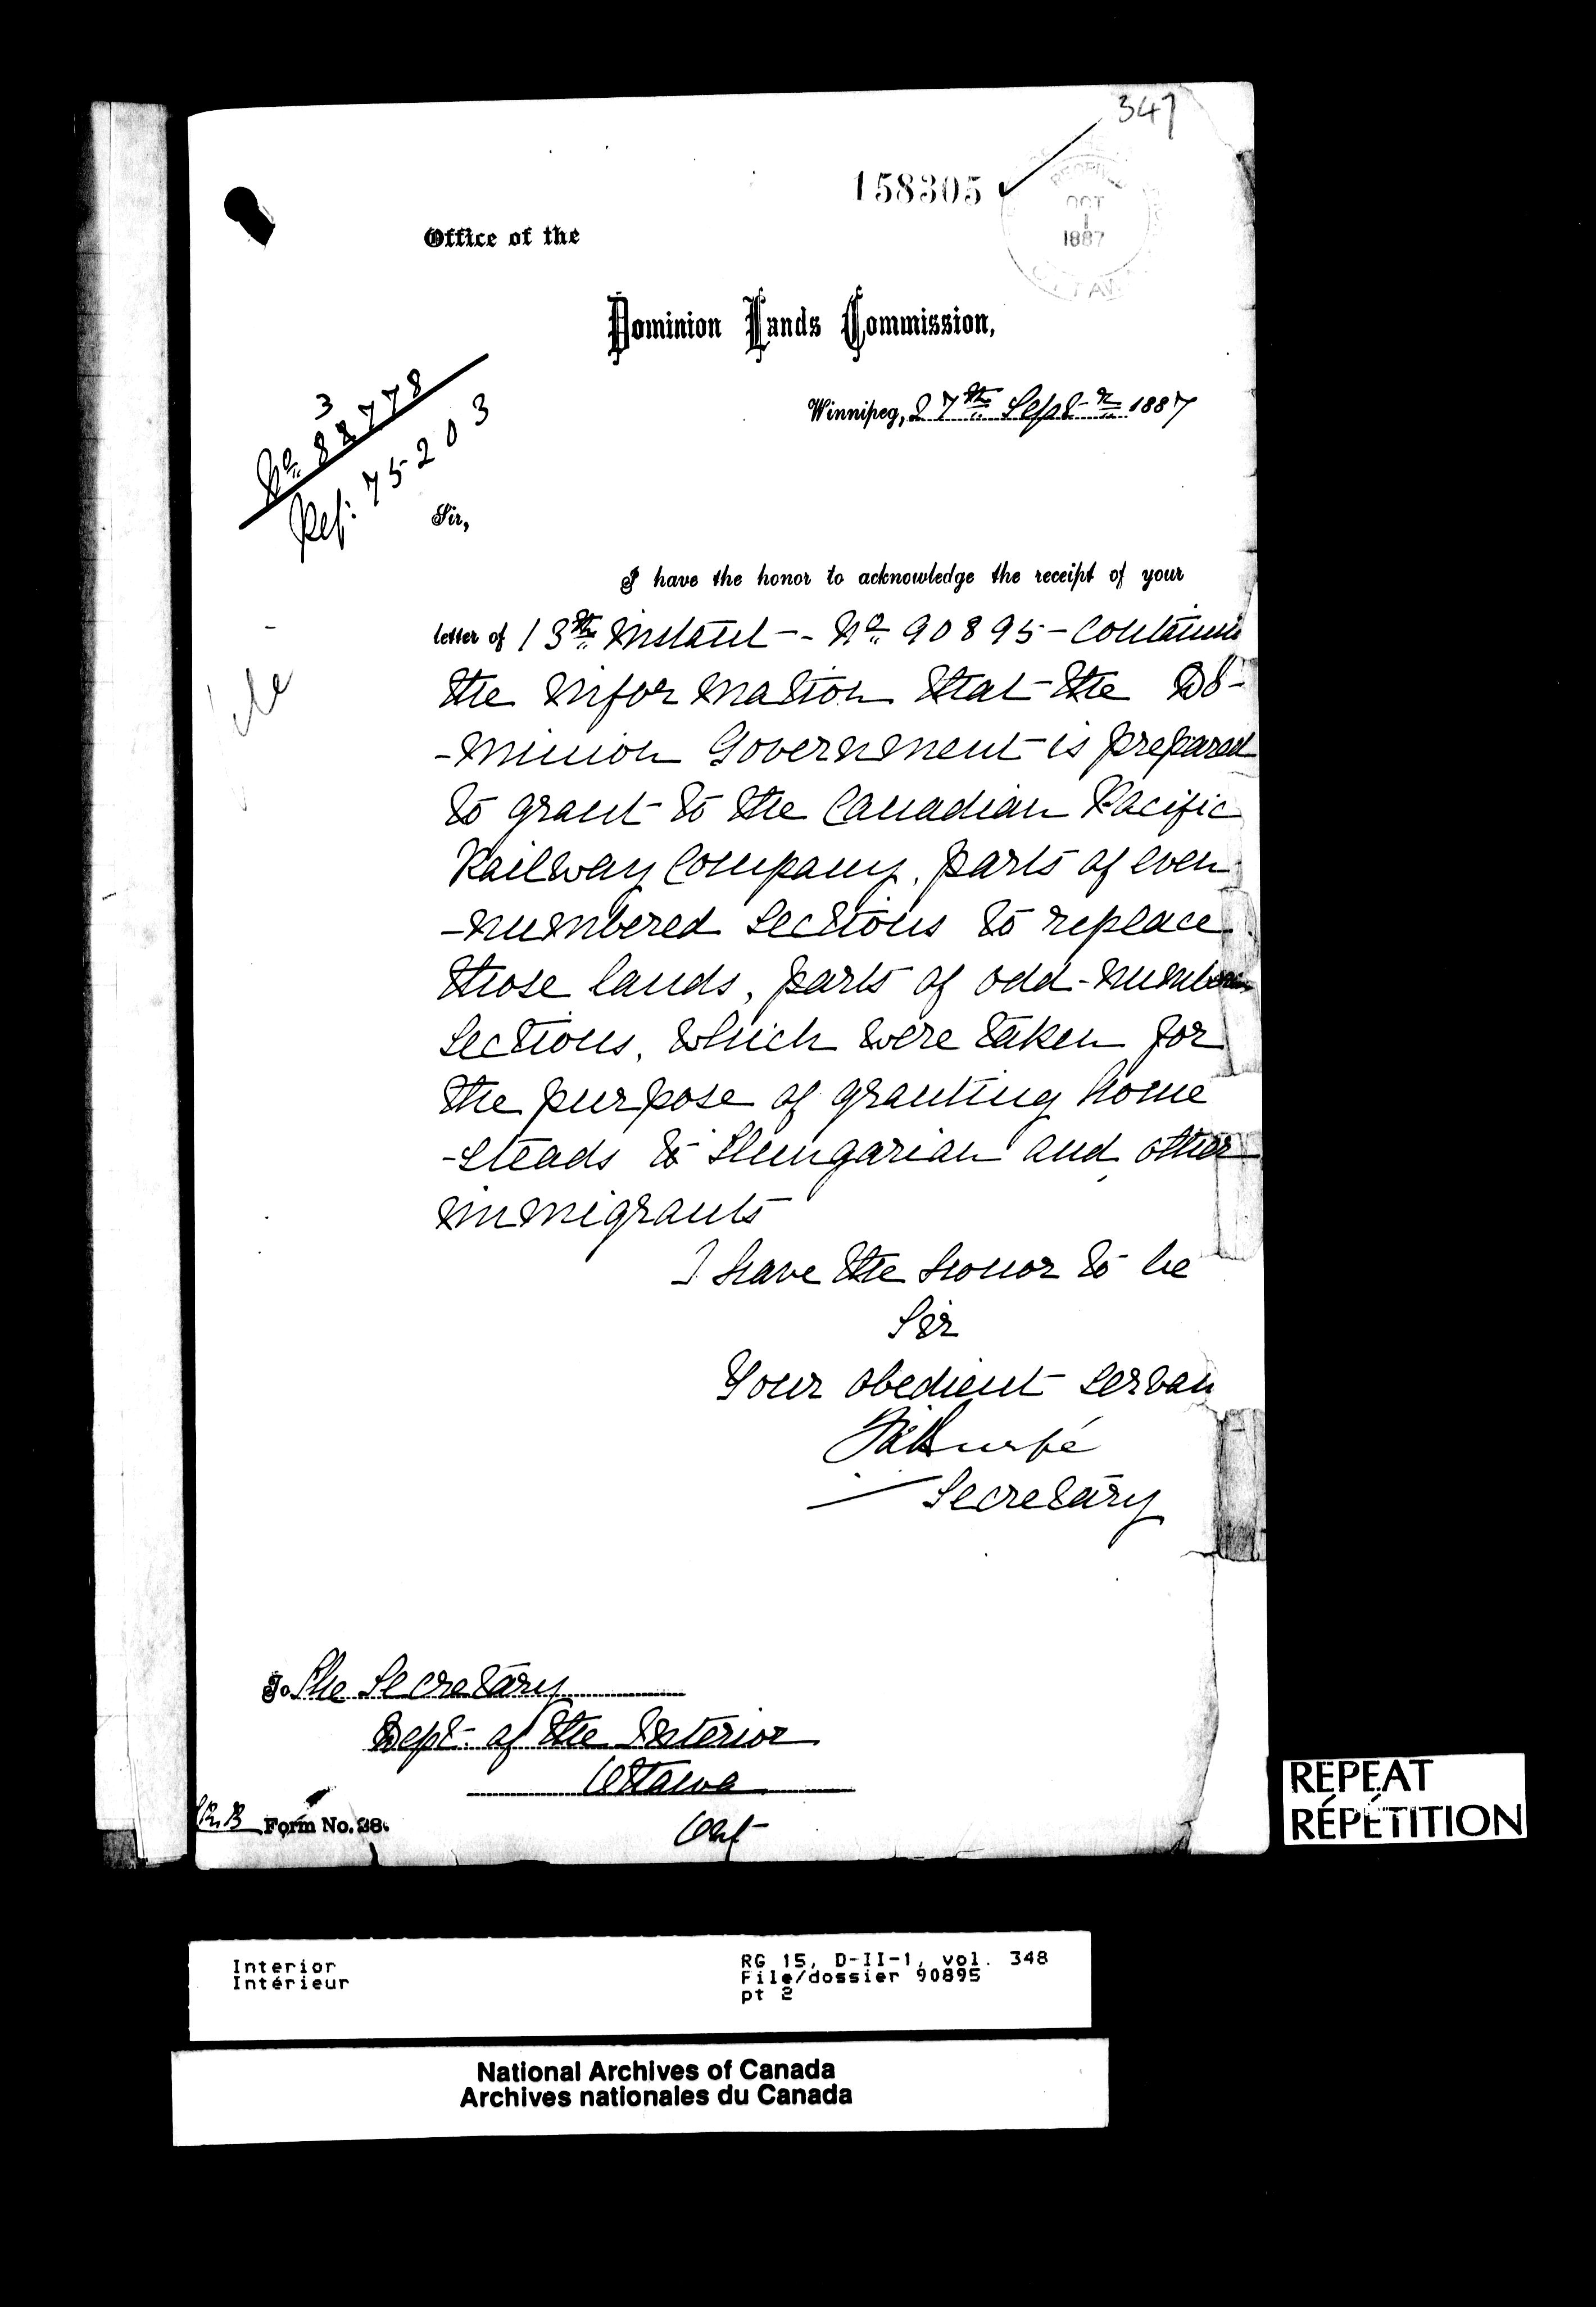 347
158305
OCT
1
1887
OTTAWA
Office of the
Dominion Lands Commission,
Winnipeg, 27th Septr 1887
3
No 88778
Ref: 75203
Sir,
I have the honor to acknowledge the receipt of your
letter of 13th instant - No 90895 - containing
the information that the Do-
-minion Government is prepared
to grant to the Canadian Pacific
Railway Company, parts of even
-numbered sections to replace
those lands, parts of odd-numbered
sections, which were taken for
the purpose of granting home
-steads to Hungarian and other
immigrants
I have the honor to be
Sir
Your obedient servan
Secretary
To The Secretary
Dept. of the Interior
Ottawa
Ont
Form No. 38.
REPEAT
RÉPÉTITION
Interior
Intérieur
RG 15, D-II-1, vol. 348
File/dossier 90895
pt 2
National Archives of Canada
Archives nationales du Canada